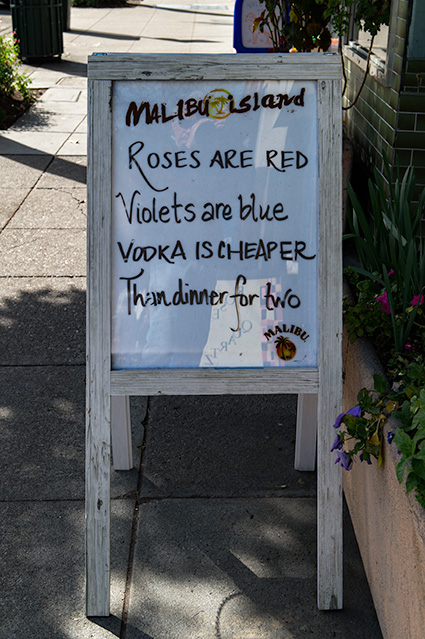 MALIBU Island
ROSES ARE RED
Violets are blue
VODKA IS CHEAPER
Than dinner for two
MALIBU